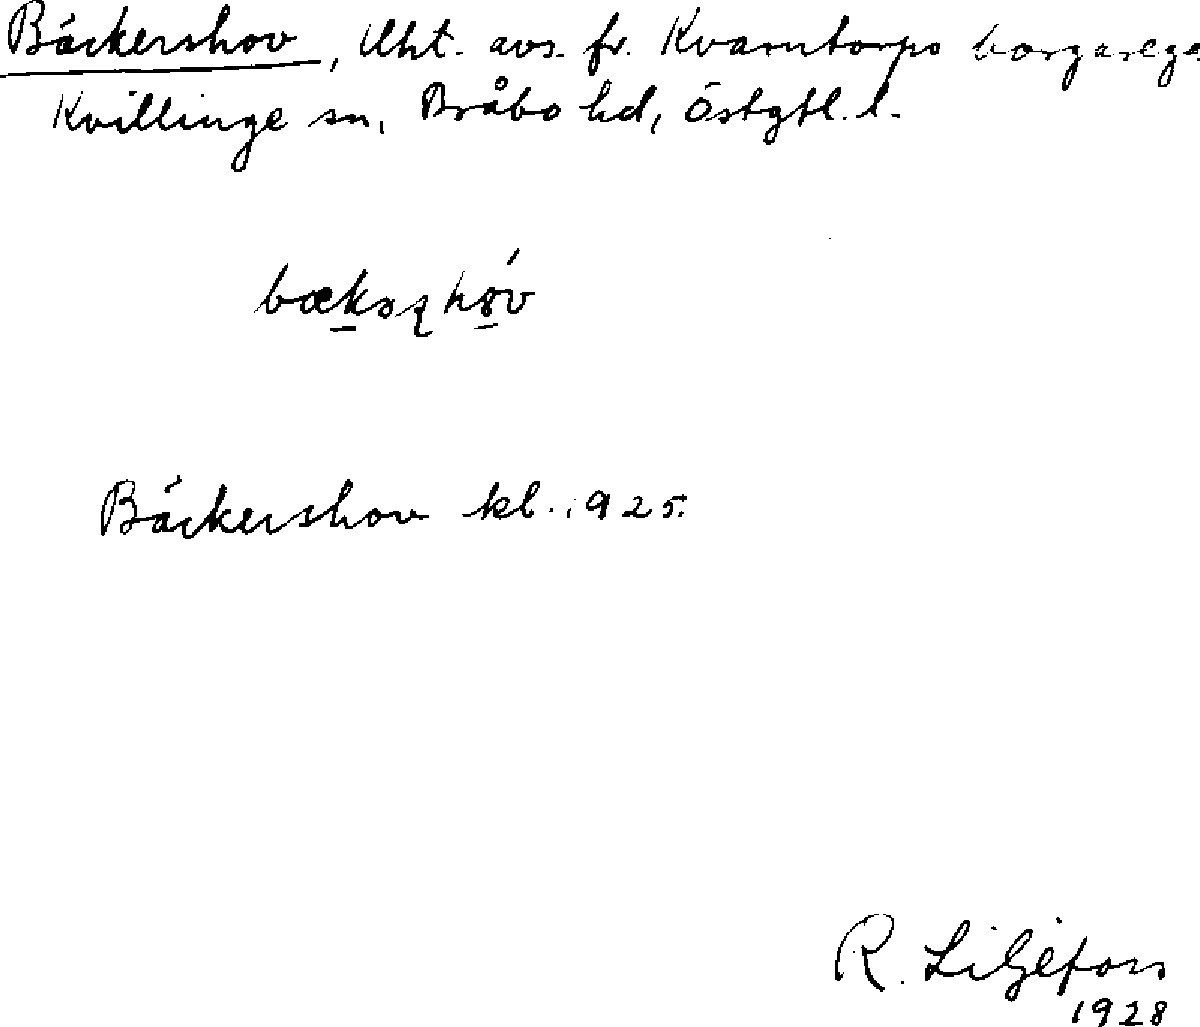 Bäckershov, lht. avs. fr. Kvarntorps borgarega
Kvillinge sn, Bråbo hd, Östgtl. l.
Bäckershov kl. 1925.
R. Liljefors
1928